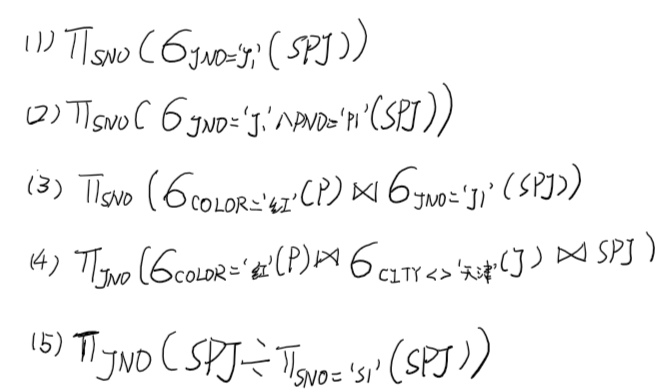 (1) π_SNO(σ_JNO='J1'(SPJ))
(2) π_SNO(σ_JNO='J1'∧PNO='P1'(SPJ))
(3) π_SNO(σ_COLOR='红'(P)⋈σ_JNO='J1'(SPJ))
(4) π_JNO(σ_COLOR='红'(P)⋈σ_CITY<>'天津'(J)⋈SPJ)
(5) π_JNO(SPJ÷π_SNO='S1'(SPJ))